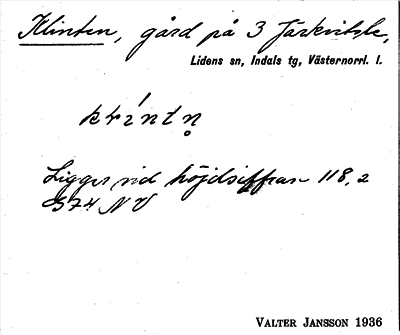 Klinten, gård på 3 Järkvitsle,
Lidens sn, Indals tg, Västernorrl. l.
Ligger vid höjdsiffran 118,2
574 NV
VALTER JANSSON 1936